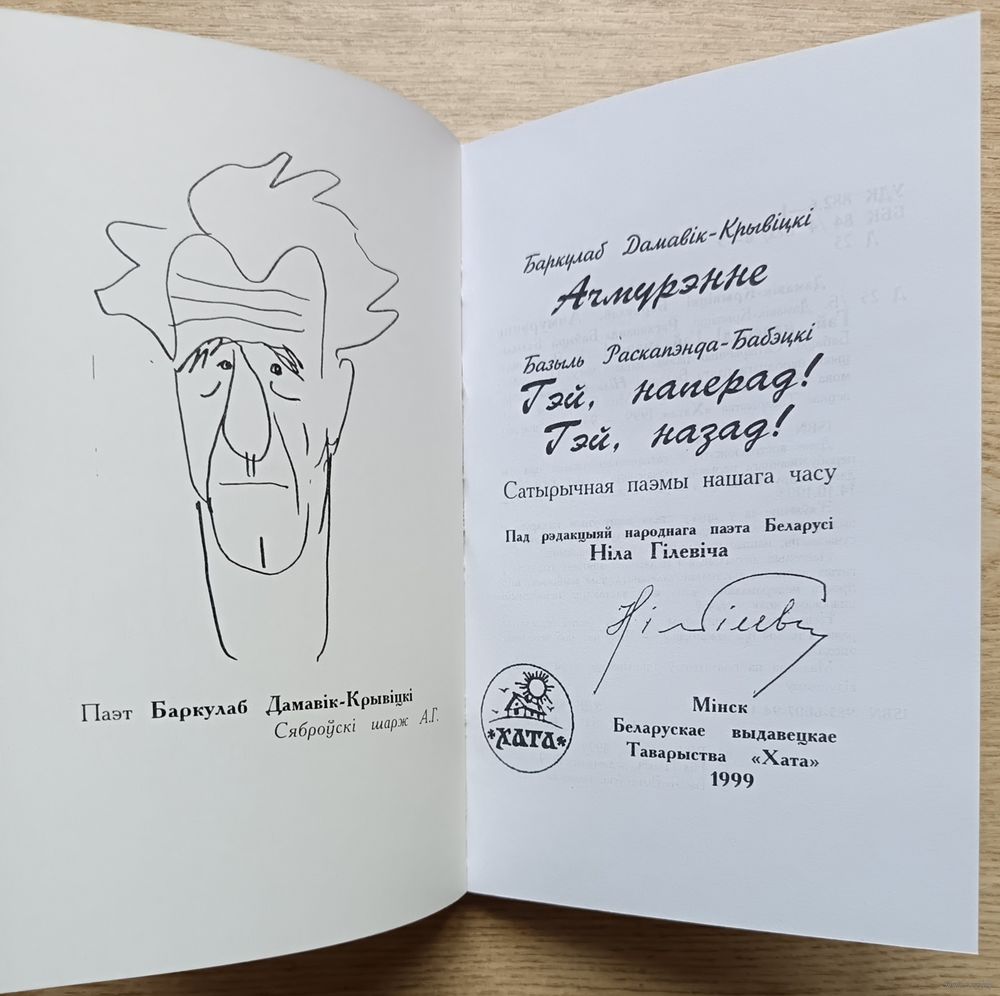 Паэт Баркулаб Дамавік-Крывіцкі
Сяброўскі шарж А.Г.
Баркулаб Дамавік-Крывіцкі
Ачмурэнне
Базыль Раскапэнда-Бабэцкі
Гэй, наперад!
Гэй, назад!
Сатырычная паэмы нашага часу
Пад рэдакцыяй народнага паэта Беларусі
Ніла Гілевіча
*ХАТА*
Мінск
Беларускае выдавецкае
Таварыства «Хата»
1999